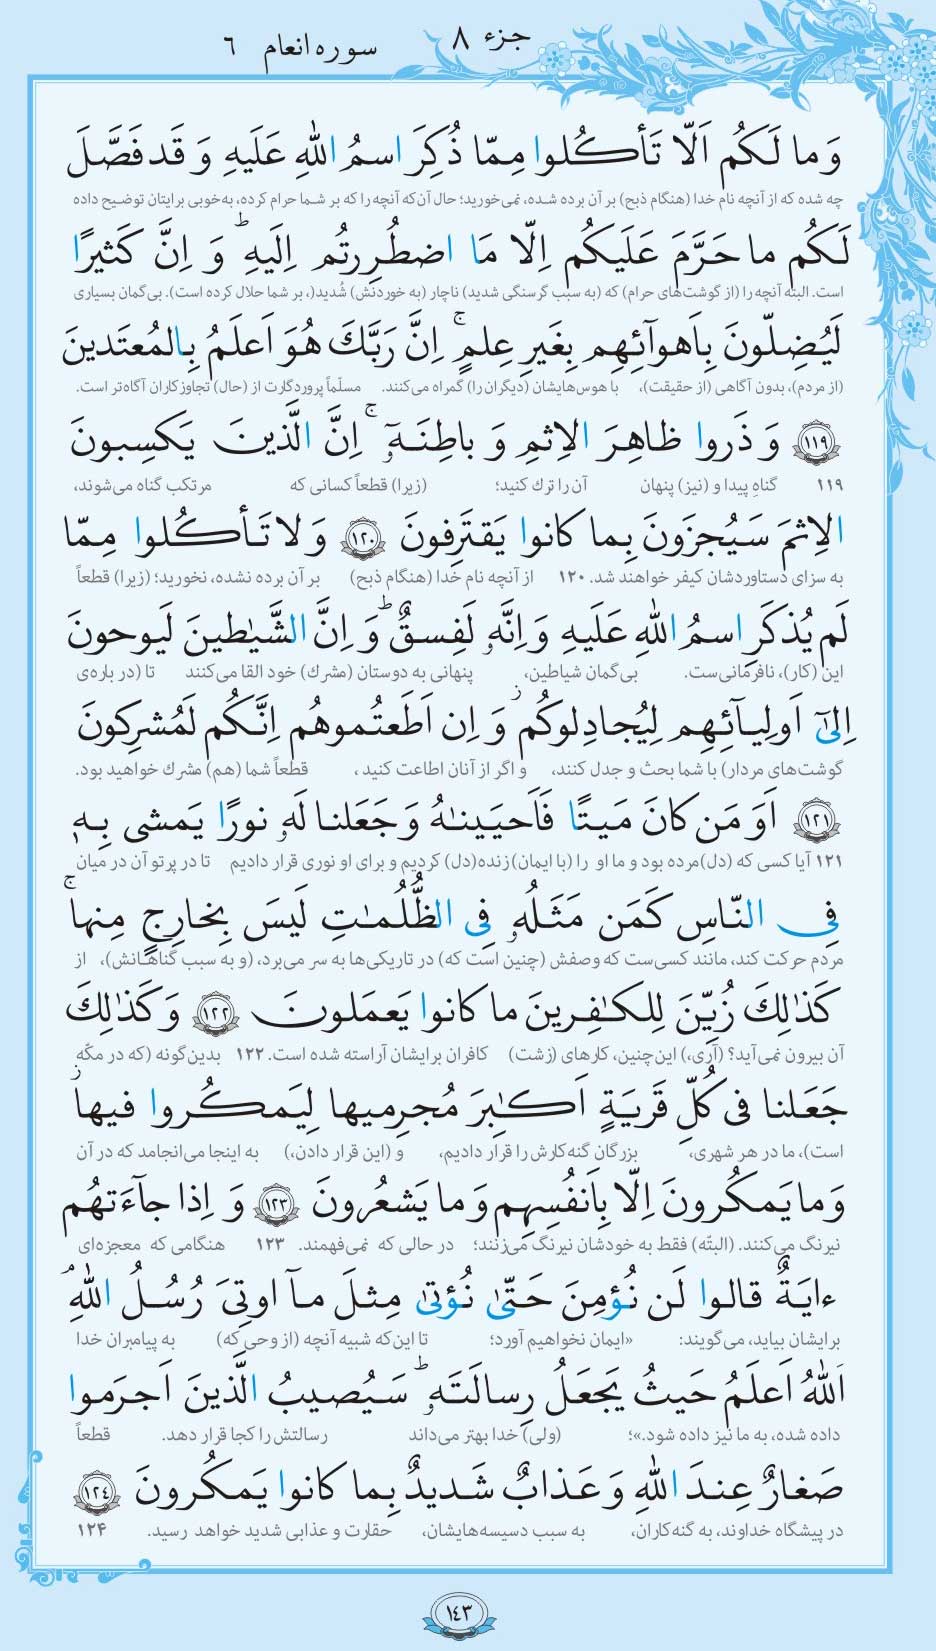 جزء ۸
سوره انعام ۶
وَ ما لَكُم اَلّا تَأكُلوا مِمّا ذُكِرَ اسمُ اللهِ عَلَيهِ وَ قَد فَصَّلَ
چه شده که از آنچه نام خدا (هنگام ذبح) بر آن برده شده، نمی‌خورید؛ حال آن‌که آنچه را که بر شما حرام کرده، به‌خوبی برایتان توضیح داده
لَكُم ما حَرَّمَ عَلَيكُم اِلّا مَا اضطُرِرتُم اِلَيهِ ؕ وَ اِنَّ كَثيرًا
است. البته آنچه را (از گوشت‌های حرام) که (به سبب گرسنگی شدید) ناچار (به خوردنش) شُدید(، بر شما حلال کرده است). بی‌گمان بسیاری
لَيُضِلّونَ بِاَهوآئِهِم بِغَيرِ عِلمٍ ۚ اِنَّ رَبَّكَ هُوَ اَعلَمُ بِالمُعتَدينَ
(از مردم)، بدون آگاهی (از حقیقت)، با هوس‌هایشان (دیگران را) گمراه می‌کنند. مسلّماً پروردگارت از (حال) تجاوزکاران آگاه‌تر است.
﴿١١٩﴾ وَ ذَروا ظاهِرَ الاِثمِ وَ باطِنَهٓ ۚ اِنَّ الَّذينَ يَكسِبونَ
۱۱۹ گناهِ پیدا و (نیز) پنهان آن را ترك کنید؛ (زیرا) قطعاً کسانی که مرتکب گناه می‌شوند،
الاِثمَ سَيُجزَونَ بِما كانوا يَقتَرِفونَ ﴿١٢٠﴾ وَ لا تَأكُلوا مِمّا
به سزای دستاوردشان کیفر خواهند شد. ۱۲۰ از آنچه نام خدا (هنگام ذبح) بر آن برده نشده، نخورید؛ (زیرا) قطعاً
لَم يُذكَرِ اسمُ اللهِ عَلَيهِ وَ اِنَّه لَفِسقٌ ؕ وَ اِنَّ الشَّيٰطينَ لَيوحونَ
این (کار)، نافرمانی‌ست. بی‌گمان شیاطین، پنهانی به دوستان (مشرك) خود القا می‌کنند تا (در باره‌ی
اِلىٰٓ اَولِيآئِهِم لِيُجادِلوكُم ز وَ اِن اَطَعتُموهُم اِنَّكُم لَمُشرِكونَ
گوشت‌های مردار) با شما بحث و جدل کنند، و اگر از آنان اطاعت کنید، قطعاً شما (هم) مشرك خواهید بود.
﴿١٢١﴾ اَوَ مَن كانَ مَيتًا فَاَحيَينٰهُ وَ جَعَلنا لَه نورًا يَمشى بِه
۱۲۱ آیا کسی که (دل)مرده بود و ما او را (با ایمان) زنده(دل) کردیم و برای او نوری قرار دادیم تا در پرتو آن در میان
فِى النّاسِ كَمَن مَثَلُه فِى الظُّلُمٰتِ لَيسَ بِخارِجٍ مِنها ۚ
مردم حرکت کند، مانند کسی‌ست که وصفش (چنین است که) در تاریکی‌ها به سر می‌برد، (و به سبب گناهانش)، از
كَذٰلِكَ زُيِّنَ لِلكٰفِرينَ ما كانوا يَعمَلونَ ﴿١٢٢﴾ وَ كَذٰلِكَ
آن بیرون نمی‌آید؟ (آری،) این‌چنین، کارهای (زشت) کافران برایشان آراسته شده است. ۱۲۲ بدین‌گونه (که در مکّه
جَعَلنا فى كُلِّ قَريَةٍ اَكٰبِرَ مُجرِميها لِيَمكُروا فيها ز
است)، ما در هر شهری، بزرگان گنه‌کارش را قرار دادیم، و (این قرار دادن،) به اینجا می‌انجامد که در آن
وَ ما يَمكُرونَ اِلّا بِاَنفُسِهِم وَ ما يَشعُرونَ ﴿١٢٣﴾ وَ اِذا جآءَتهُم
نیرنگ می‌کنند. (البتّه) فقط به خودشان نیرنگ می‌زنند؛ در حالی که نمی‌فهمند. ۱۲۳ هنگامی که معجزه‌ای
ءايَةٌ قالوا لَن نُؤمِنَ حَتّىٰ نُؤتىٰ مِثلَ مآ اوتِىَ رُسُلُ اللهِ ۘ
برایشان بیاید، می‌گویند: «ایمان نخواهیم آورد؛ تا این‌که شبیه آنچه (از وحی که) به پیامبران خدا
اَللهُ اَعلَمُ حَيثُ يَجعَلُ رِسالَتَه ؕ سَيُصيبُ الَّذينَ اَجرَموا
داده شده، به ما نیز داده شود.»؛ (ولی) خدا بهتر می‌داند رسالتش را کجا قرار دهد. قطعاً
صَغارٌ عِندَ اللهِ وَ عَذابٌ شَديدٌ بِما كانوا يَمكُرونَ ﴿١٢٤﴾
در پیشگاه خداوند، به گنه‌کاران، به سبب دسیسه‌هایشان، حقارت و عذابی شدید خواهد رسید. ۱۲۴
۱۴۳